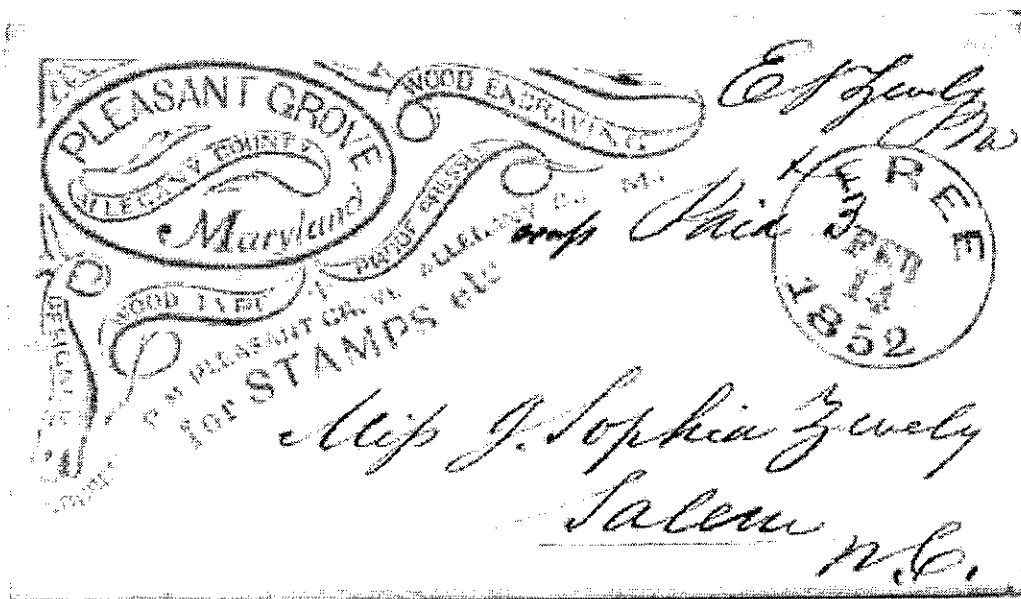 PLEASANT GROVE
ALLEGANY COUNTY
Maryland
WOOD ENGRAVING
WOOD TYPE
P.M. PLEASANT GROVE ALLEGANY CO. Md.
for STAMPS etc
E S Zevely
PM
Paid 3
FREE
FEB
14
1852
Miss J. Sophia Zevely
Salem
N.C.